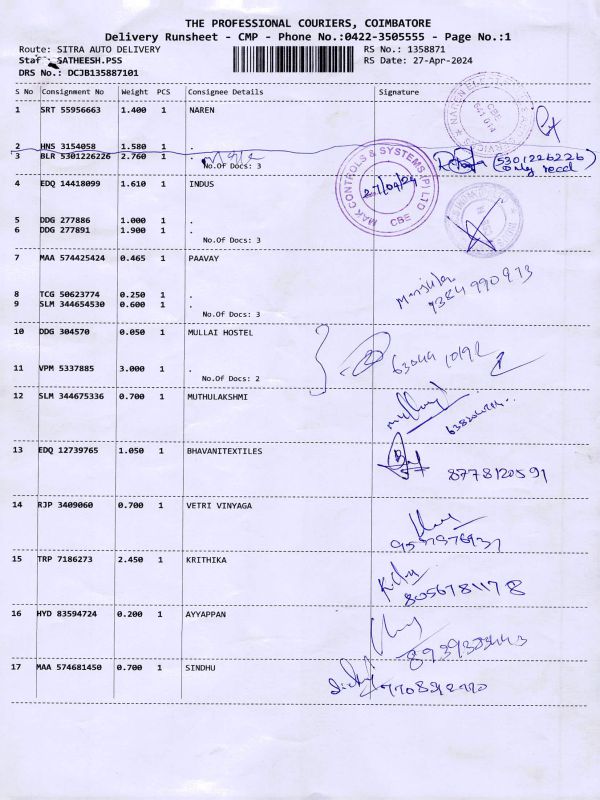 THE PROFESSIONAL COURIERS, COIMBATORE
Delivery Runsheet - CMP - Phone No.:0422-3505555 - Page No.:1
Route: SITRA AUTO DELIVERY
RS No.: 1358871
Staf : SATHEESH.PSS
RS Date: 27-Apr-2024
DRS No.: DCJB135887101
S No Consignment No Weight PCS Consignee Details Signature
1 SRT 55956663 1.400 1 NAREN
2 HNS 3154058 1.580 1 .
3 BLR 5301226226 2.760 1 .
(5301226226 only recd)
No.Of Docs: 3
MAK CONTROLS & SYSTEMS (P) LTD
CBE
27/04/24
4 EDQ 14418099 1.610 1 INDUS
5 DDG 277886 1.000 1 .
6 DDG 277891 1.900 1 .
No.Of Docs: 3
7 MAA 574425424 0.465 1 PAAVAY
8 TCG 50623774 0.250 1 .
9 SLM 344654530 0.600 1 .
No.Of Docs: 3
10 DDG 304570 0.050 1 MULLAI HOSTEL
11 VPM 5337885 3.000 1 .
No.Of Docs: 2
12 SLM 344675336 0.700 1 MUTHULAKSHMI
13 EDQ 12739765 1.050 1 BHAVANITEXTILES
8778120591
14 RJP 3409060 0.700 1 VETRI VINYAGA
15 TRP 7186273 2.450 1 KRITHIKA
8056781178
16 HYD 83594724 0.200 1 AYYAPPAN
17 MAA 574681450 0.700 1 SINDHU